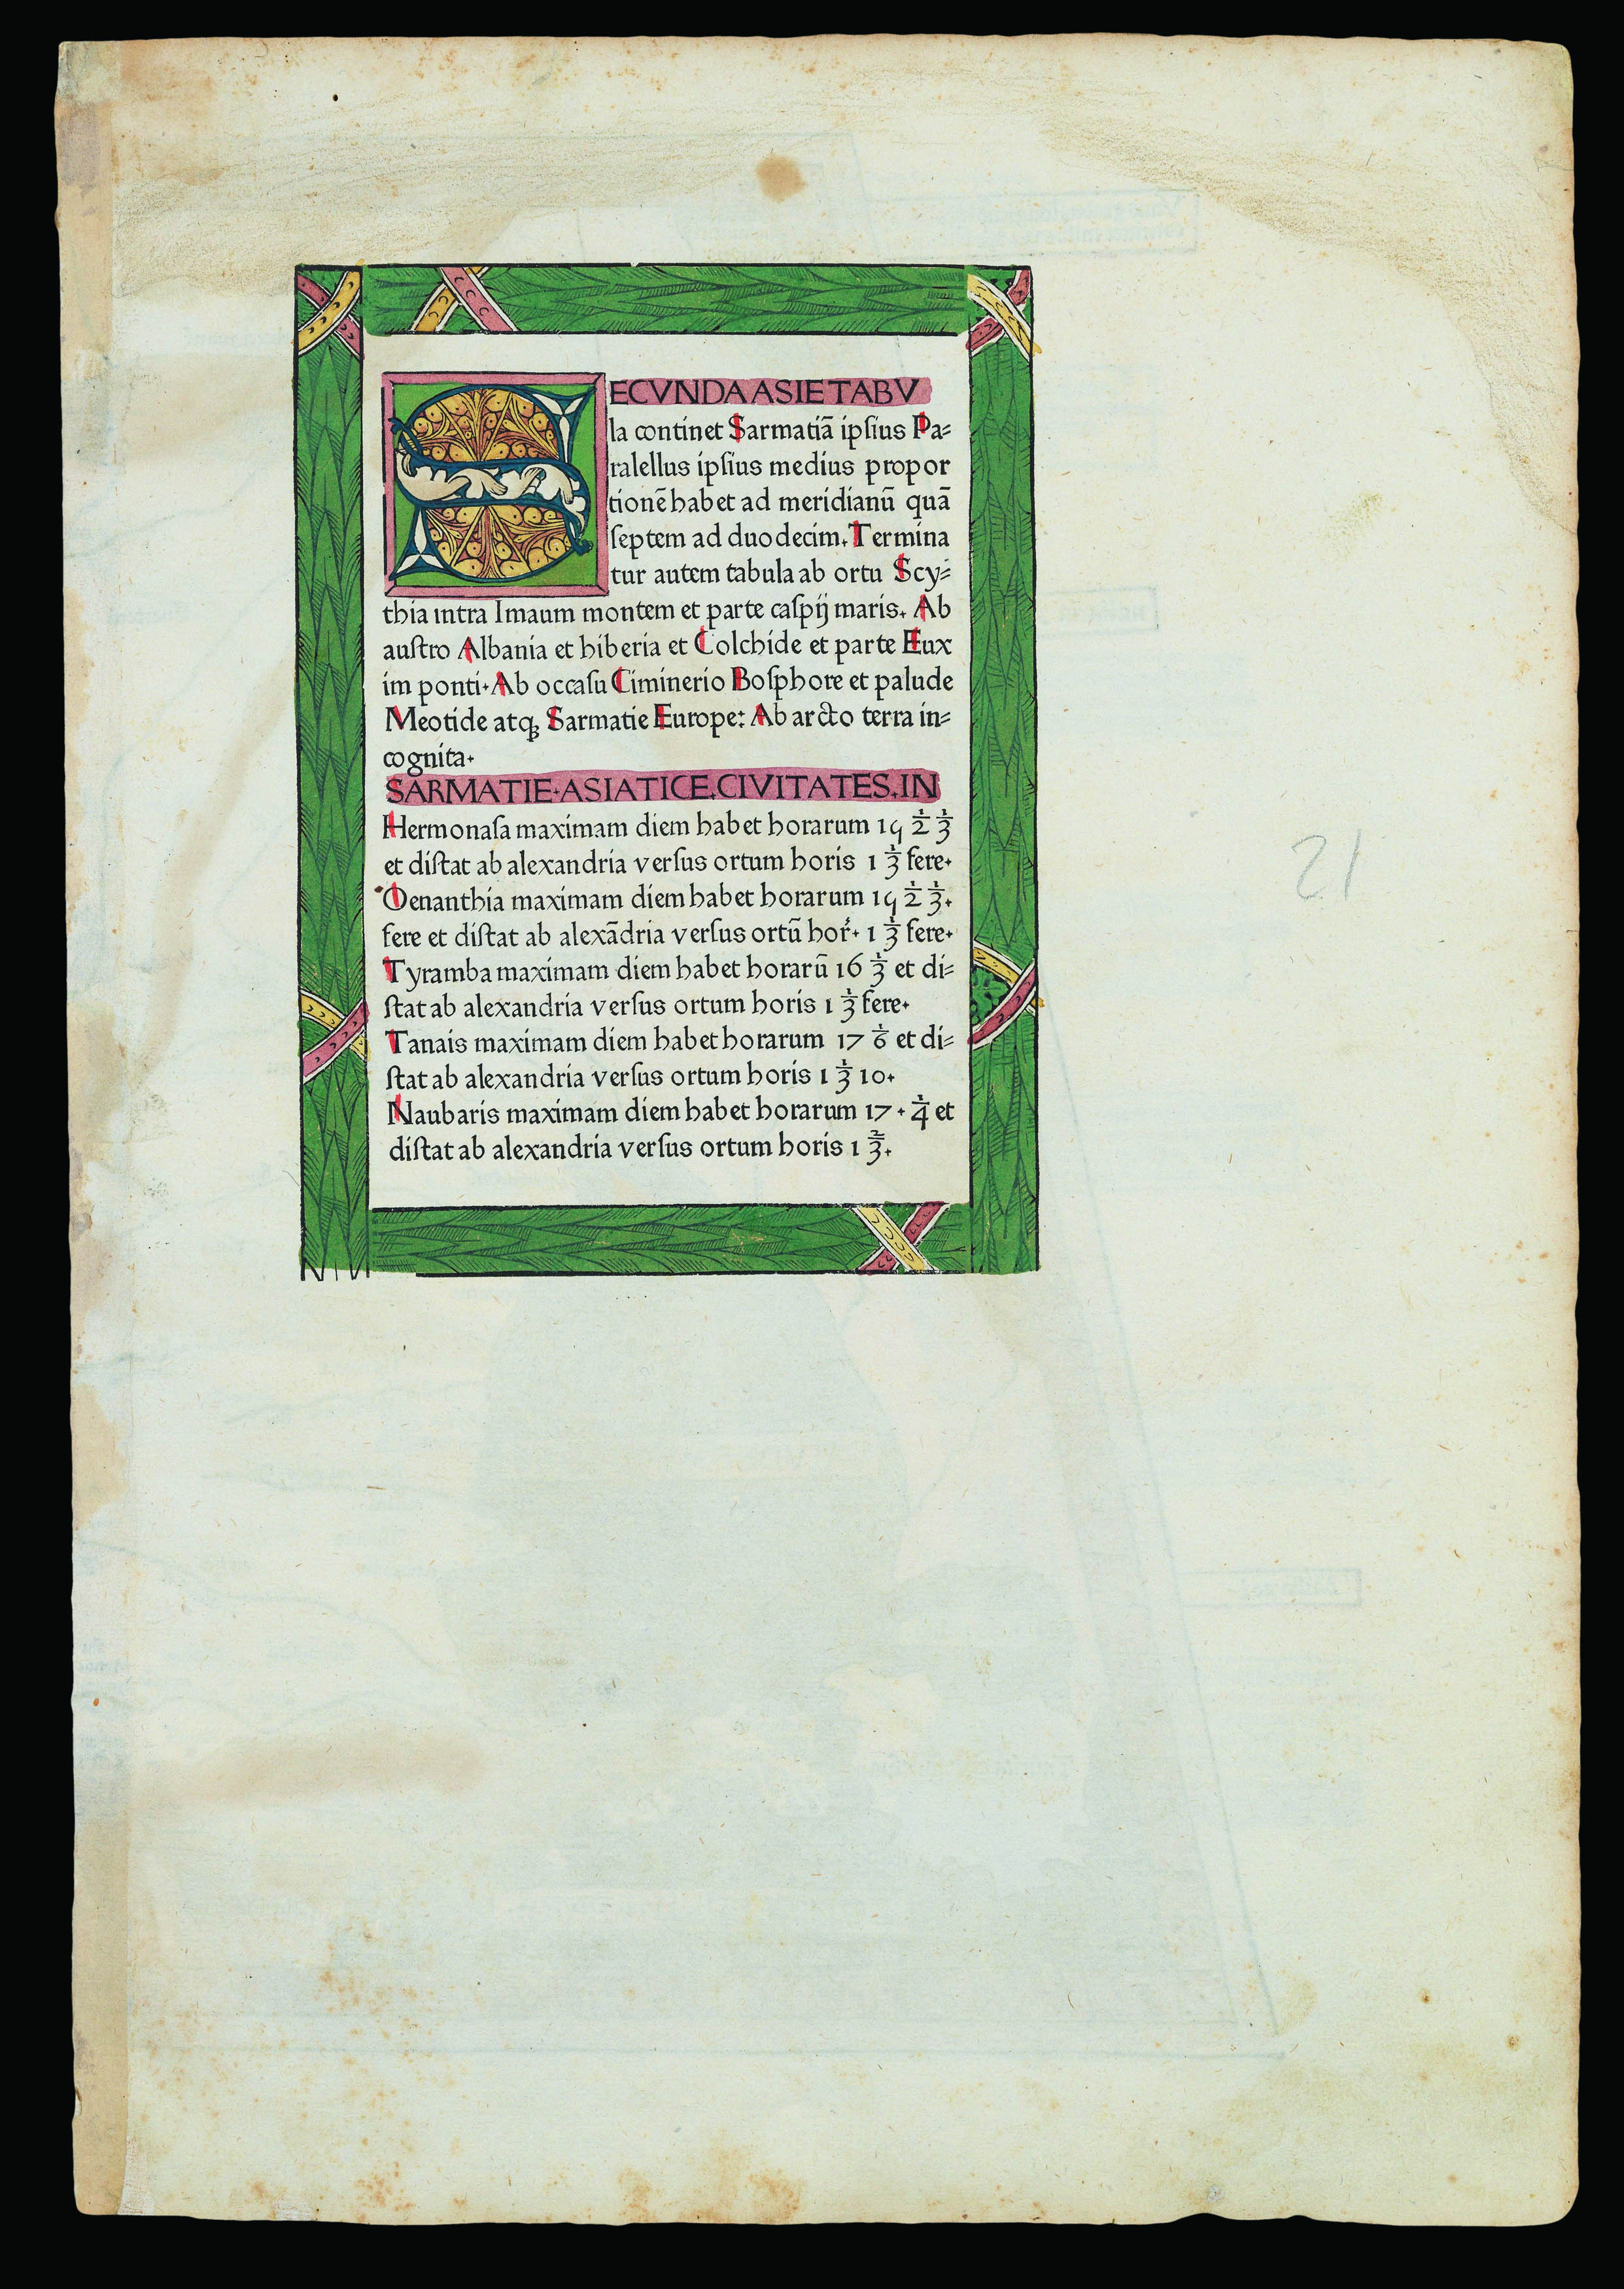 SECVNDA ASIE TABV
la continet Sarmatiā ipſius Pa⸗
ralellus ipſius medius propor
tionē habet ad meridianū quā
ſeptem ad duodecim. Termina
tur autem tabula ab ortu Scy⸗
thia intra Imaum montem et parte caſpij maris. Ab
auſtro Albania et hiberia et Colchide et parte Eux
im ponti. Ab occaſu Ciminerio Boſphore et palude
Meotide atqꝫ Sarmatie Europe: Ab arcto terra in⸗
cognita.
SARMATIE. ASIATICE. CIVITATES. IN
Hermonaſa maximam diem habet horarum 15 ½ ⅓
et diſtat ab alexandria verſus ortum horis 1 ⅓ fere.
Oenanthia maximam diem habet horarum 15 ½ ⅓.
fere et diſtat ab alexādria verſus ortū hor. 1 ⅓ fere.
Tyramba maximam diem habet horarū 16 ⅓ et di⸗
ſtat ab alexandria verſus ortum horis 1 ⅓ fere.
Tanais maximam diem habet horarum 17 ⅙ et di⸗
ſtat ab alexandria verſus ortum horis 1 ⅓ 10.
Naubaris maximam diem habet horarum 17 . ¼ et
diſtat ab alexandria verſus ortum horis 1 ⅔.
21